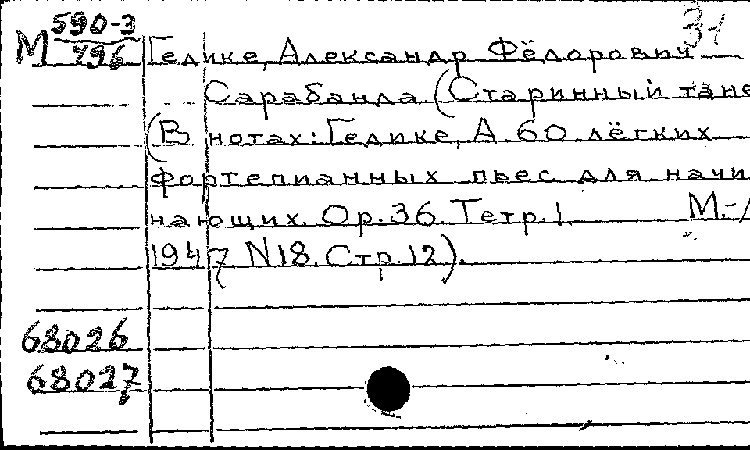 М 590-3/496 31
Гедике, Александр Фёдорович
Сарабанда (Старинный тане
(В нотах: Гедике, А. 60 лёгких
фортепианных пьес для начи
нающих. Ор. 36. Тетр. 1. М.-Л
1947 N18. Стр. 12).
68026
68027